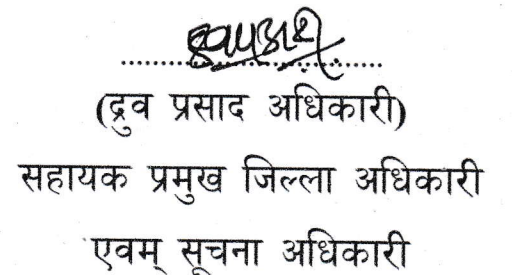 (द्रुव प्रसाद अधिकारी)
सहायक प्रमुख जिल्ला अधिकारी
एवम् सूचना अधिकारी